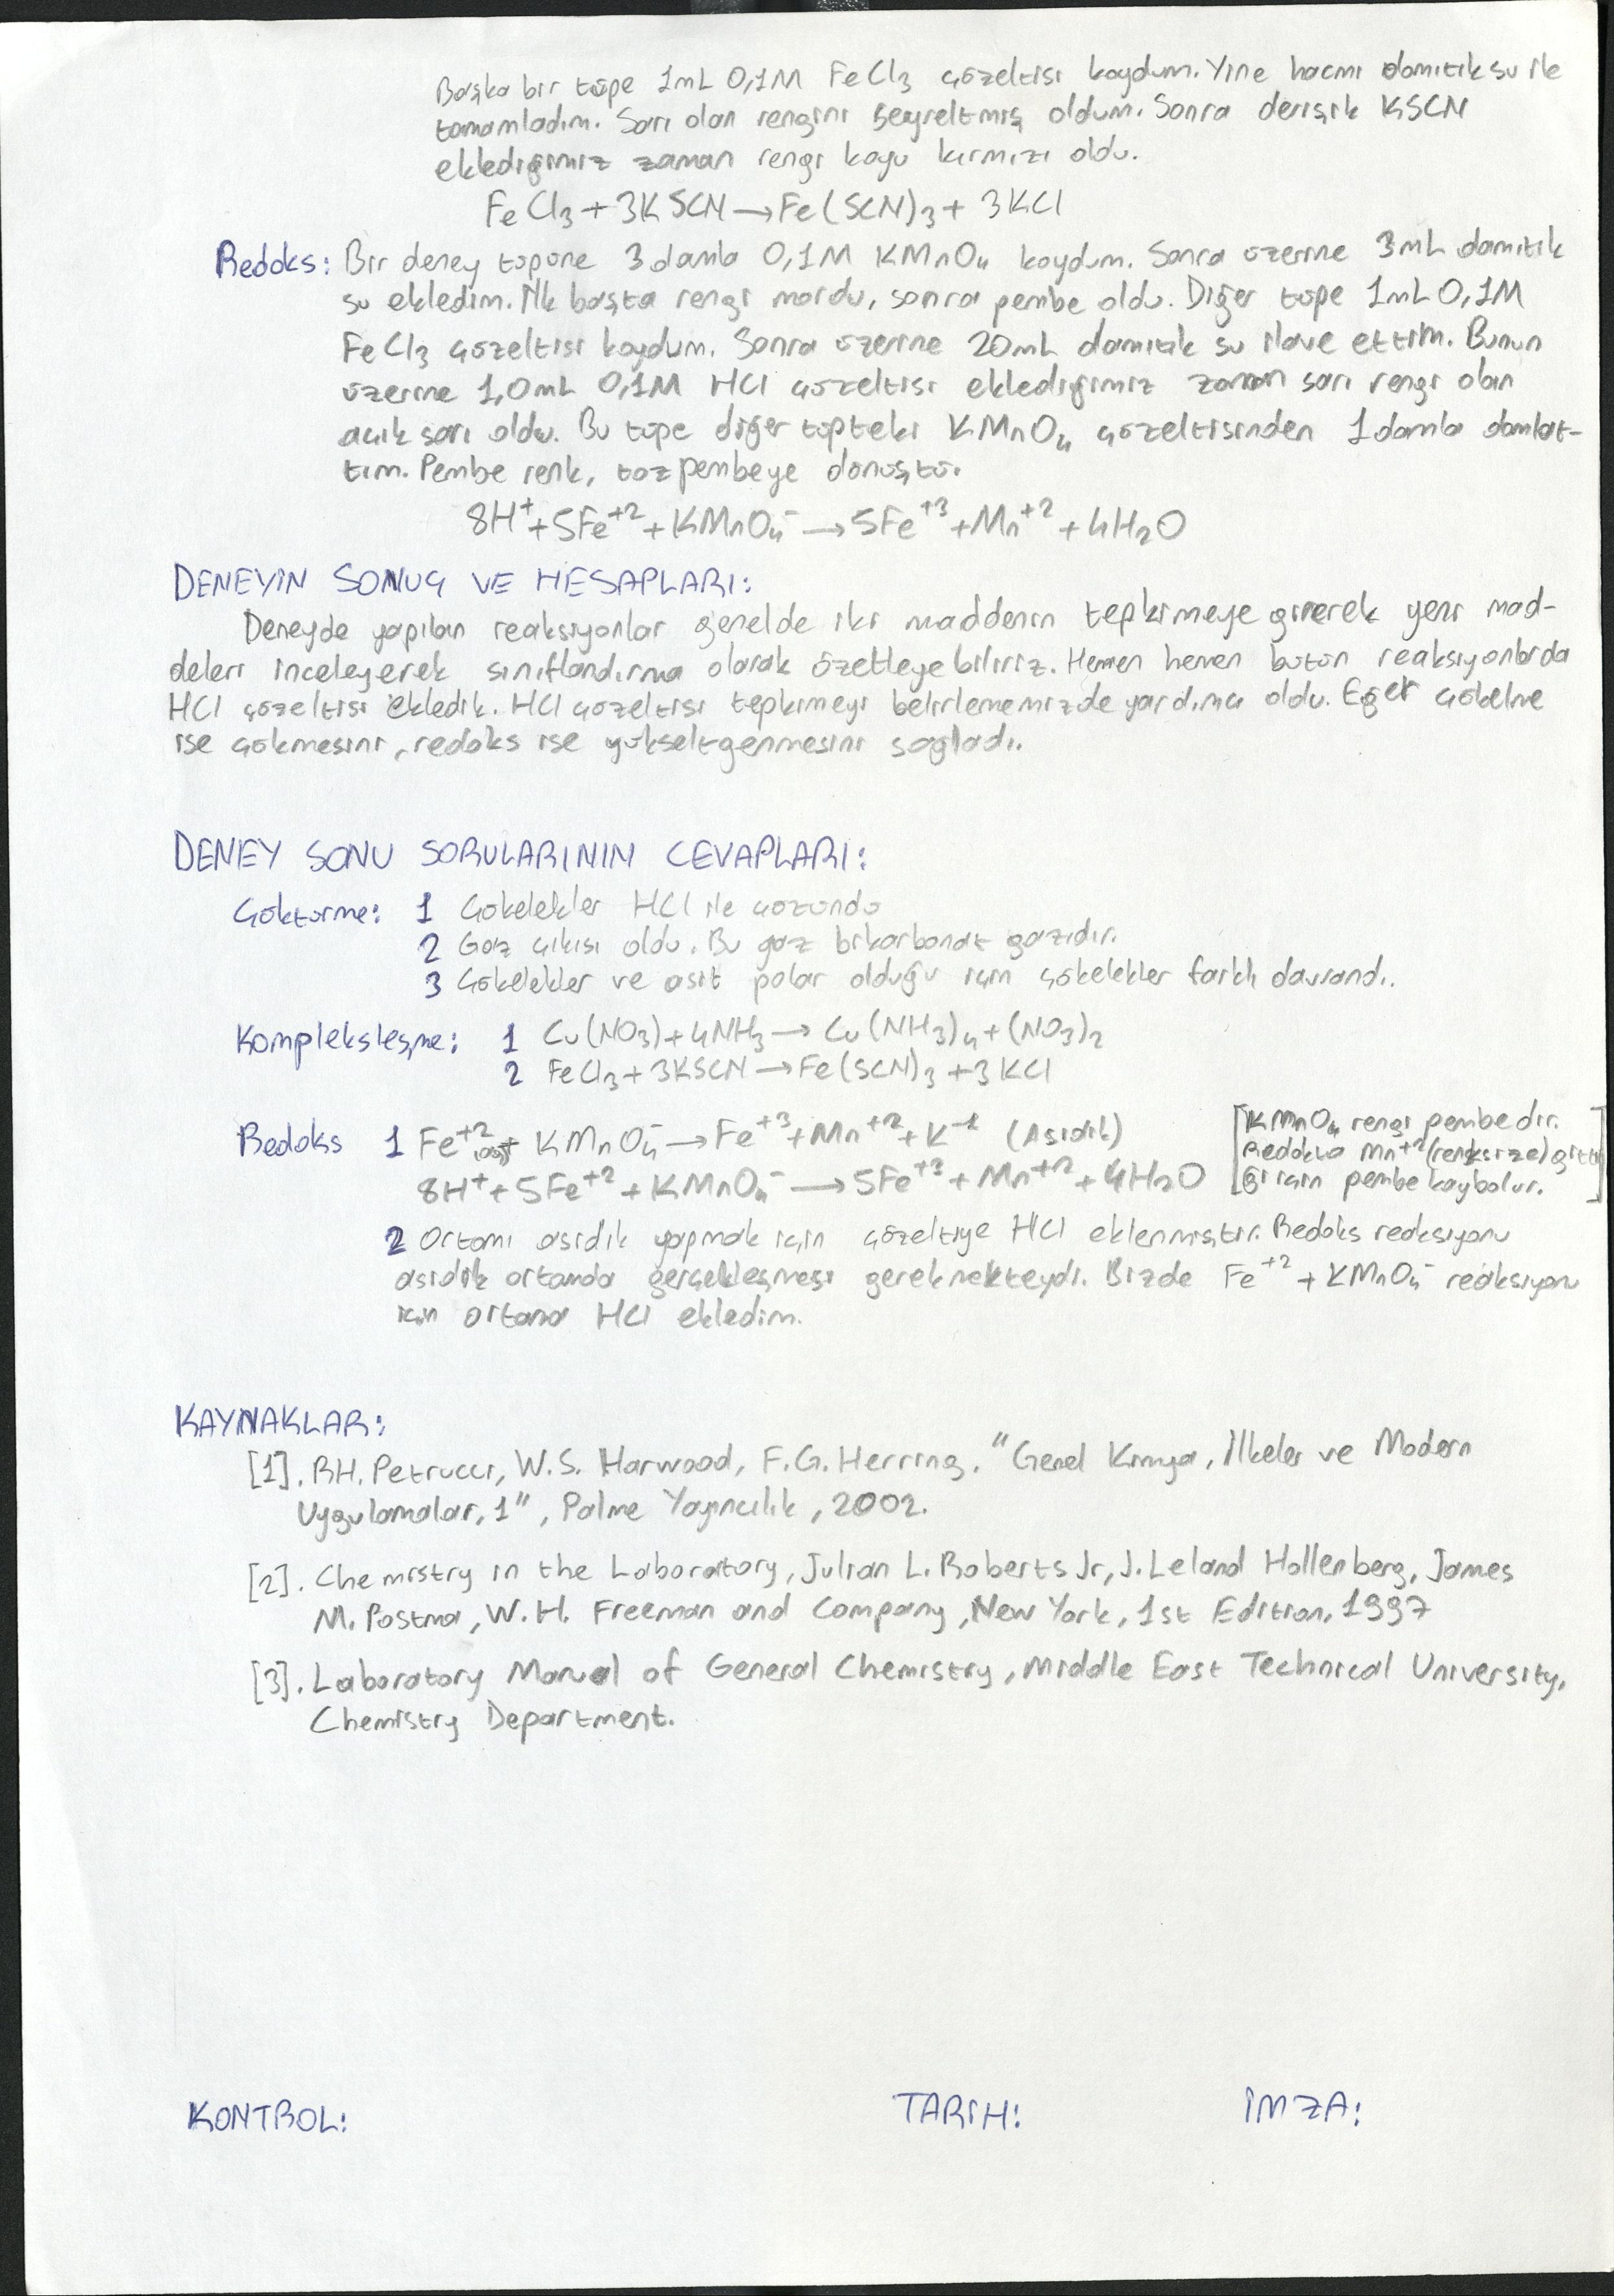 Başka bir tüpe 1mL 0,1M FeCl₃ çözeltisi koydum. Yine hacmi damıtık su ile
tamamladım. Sarı olan rengini seyreltmiş oldum. Sonra derişik KSCN
eklediğimiz zaman rengi koyu kırmızı oldu.
FeCl₃ + 3KSCN → Fe(SCN)₃ + 3KCl
Redoks: Bir deney tüpüne 3 damla 0,1M KMnO₄ koydum. Sonra üzerine 3mL damıtık
su ekledim. İlk başta rengi mordu, sonra pembe oldu. Diğer tüpe 1mL 0,1M
FeCl₃ çözeltisi koydum. Sonra üzerine 20mL damıtık su ilave ettim. Bunun
üzerine 1,0mL 0,1M HCl çözeltisi eklediğimiz zaman sarı rengi olan
açık sarı oldu. Bu tüpe diğer tüpteki KMnO₄ çözeltisinden 1 damla damlat-
tım. Pembe renk, toz pembeye dönüştü.
8H⁺ + 5Fe⁺² + KMnO₄⁻ → 5Fe⁺³ + Mn⁺² + 4H₂O
DENEYİN SONUÇ VE HESAPLARI:
Deneyde yapılan reaksiyonlar genelde iki maddenin tepkimeye girerek yeni mad-
deleri inceleyerek sınıflandırma olarak özetleyebiliriz. Hemen hemen bütün reaksiyonlarda
HCl çözeltisi ekledik. HCl çözeltisi tepkimeyi belirlememizde yardımcı oldu. Eğer çökelme
ise çökmesini, redoks ise yükseltgenmesini sağladı.
DENEY SONU SORULARININ CEVAPLARI:
Çöktürme: 1 Çökelekler HCl ile çözündü
2 Gaz çıkısı oldu. Bu gaz bikarbonat gazıdır.
3 Çökelekler ve asit polar olduğu için çökelekler farklı davrandı.
Kompleksleşme: 1 Cu(NO₃) + 4NH₃ → Cu(NH₃)₄ + (NO₃)₂
2 FeCl₃ + 3KSCN → Fe(SCN)₃ + 3KCl
Redoks 1 Fe⁺² + KMnO₄⁻ → Fe⁺³ + Mn⁺² + K⁻¹ (Asidik)
8H⁺ + 5Fe⁺² + KMnO₄⁻ → 5Fe⁺³ + Mn⁺² + 4H₂O
[KMnO₄ rengi pembedir.
Redoksta Mn⁺² (renksize) gitti
ği için pembe kaybolur.]
2 Ortamı asidik yapmak için çözeltiye HCl eklenmiştir. Redoks reaksiyonu
asidik ortamda gerçekleşmesi gerekmekteydi. Bizde Fe⁺² + KMnO₄⁻ reaksiyonu
için ortama HCl ekledim.
KAYNAKLAR:
[1]. R.H. Petrucci, W.S. Harwood, F.G. Herring. "Genel Kimya, İlkeler ve Modern
Uygulamalar, 1", Palme Yayıncılık, 2002.
[2]. Chemistry in the Laboratory, Julian L. Roberts Jr, J. Leland Hollenberg, James
M. Postma, W.H. Freeman and Company, New York, 1st Edition, 1997
[3]. Laboratory Manual of General Chemistry, Middle East Technical University,
Chemistry Department.
KONTROL: TARİH: İMZA: